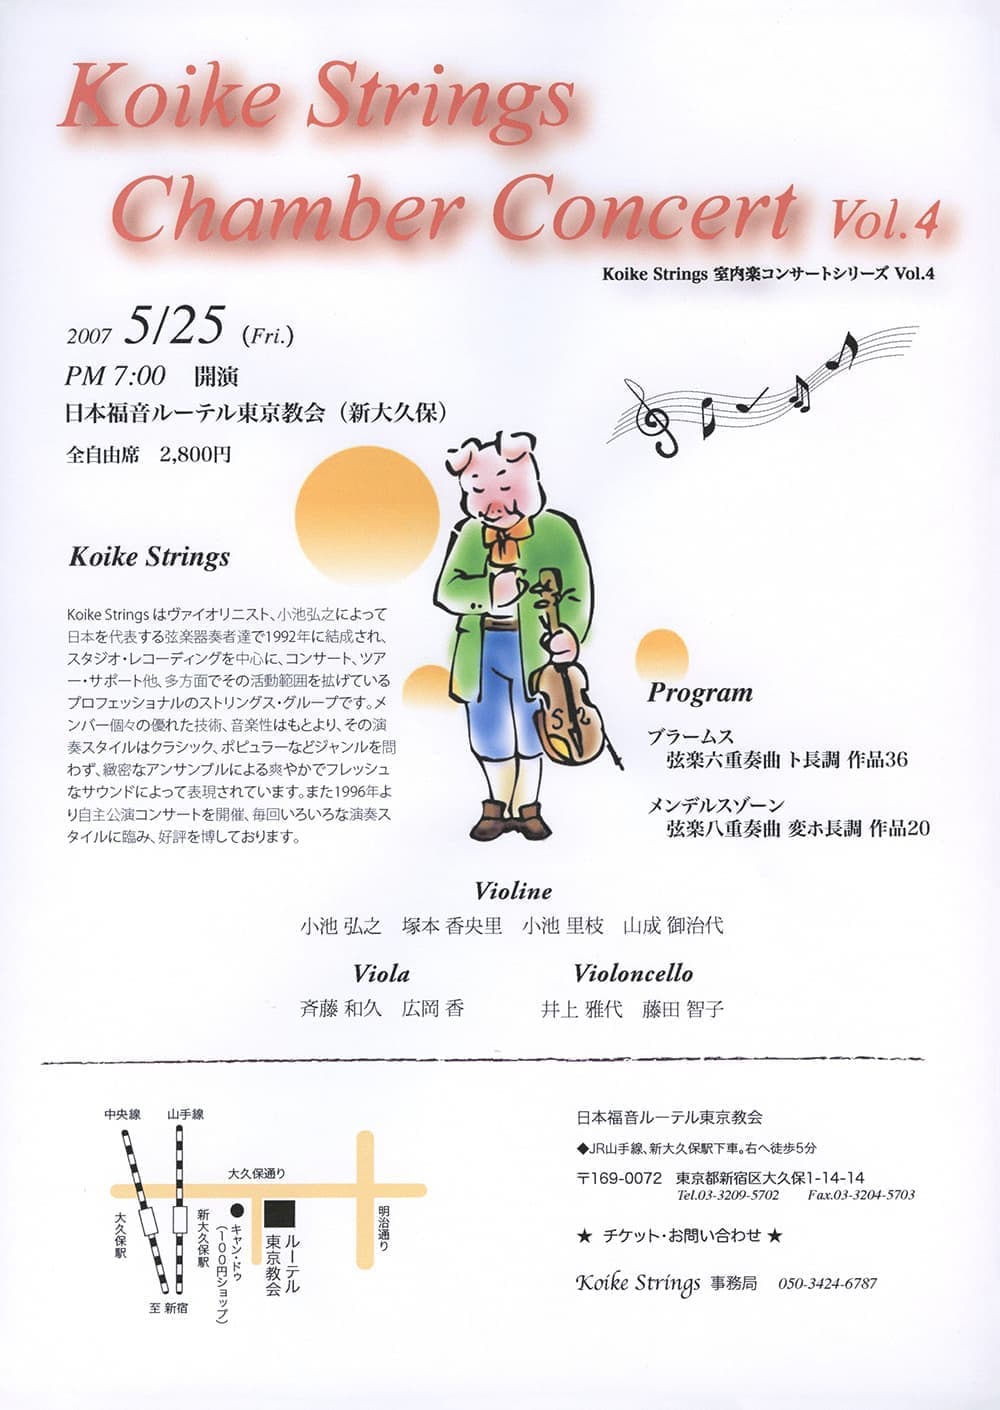 Koike Strings
Chamber Concert Vol.4
Koike Strings 室内楽コンサートシリーズ Vol.4
2007 5/25 (Fri.)
PM 7:00 開演
日本福音ルーテル東京教会（新大久保）
全自由席 2,800円
Koike Strings
Koike Strings はヴァイオリニスト、小池弘之によって
日本を代表する弦楽器奏者達で1992年に結成され、
スタジオ・レコーディングを中心に、コンサート、ツア
ー・サポート他、多方面でその活動範囲を拡げている
プロフェッショナルのストリングス・グループです。メ
ンバー個々の優れた技術、音楽性はもとより、その演
奏スタイルはクラシック、ポピュラーなどジャンルを問
わず、緻密なアンサンブルによる爽やかでフレッシュ
なサウンドによって表現されています。また1996年よ
り自主公演コンサートを開催、毎回いろいろな演奏ス
タイルに臨み、好評を博しております。
Program
ブラームス
弦楽六重奏曲 ト長調 作品36
メンデルスゾーン
弦楽八重奏曲 変ホ長調 作品20
Violine
小池 弘之 塚本 香央里 小池 里枝 山成 御治代
Viola
斉藤 和久 広岡 香
Violoncello
井上 雅代 藤田 智子
中央線
山手線
大久保通り
大久保駅
新大久保駅
キャン・ドゥ
（100円ショップ）
ルーテル
東京教会
明治通り
至 新宿
日本福音ルーテル東京教会
◆JR山手線、新大久保駅下車。右へ徒歩5分
〒169-0072 東京都新宿区大久保1-14-14
Tel.03-3209-5702 Fax.03-3204-5703
★ チケット・お問い合わせ ★
Koike Strings 事務局 050-3424-6787